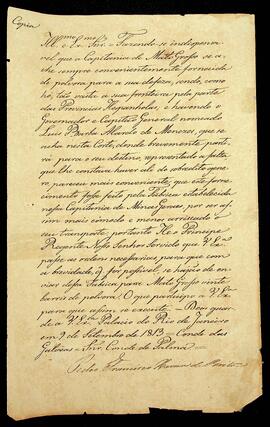 Copia
Ill.mo e Ex.mo Snr. = Fazendo-se indispensa-
vel que a Capitania de Mato Grosso se a-
che sempre convenientemente fornecida
de polvora para a sua defeza, sendo, co-
mo, tão vasta a sua fronteira pela parte
das Provincias Hespanholas, e havendo o
Governador e Capitão General nomeado
João Carlos Augusto d'Oeynhausen
nesta Corte, donde brevemente parti-
rá para o seu destino, representado a falta
que lhe constava haver ali do sobredito gene-
ro, pareceu mais conveniente, que este forne-
cimento fosse feito pela Fabrica estabelecida
nessa Capitania de Minas Geraes, por ser as-
sim mais cómodo e menos arriscado o
seu transporte, portanto He o Principe
Regente Nosso Senhor Servido que V. Ex.a
passe as ordens necessarias, para que com
a brevidade, q for possivel, se hajão de en-
viar dessa Fabrica para Mato Grosso vinte
barris de polvora. O que participo a V. Ex.a
para que assim se execute. = Deos guar-
de a V. Ex.a Palacio do Rio de Janeiro
em 9 de Setembro de 1813 = Conde das
Galveas = Snr. Conde de Palma =